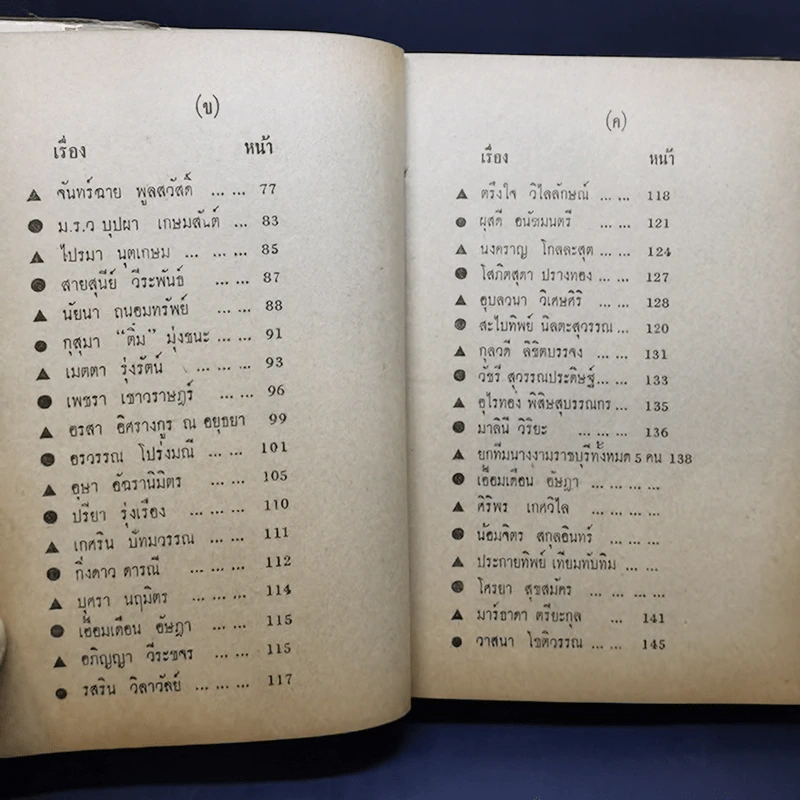 (ข)
เรื่อง หน้า
▲ จันทร์ฉาย พูลสวัสดิ์ ... ... 77
● ม.ร.ว บุปผา เกษมสันต์ ... 83
▲ ไปรมา นุตเกษม ... ... ... 85
● สายสุนีย์ วีระพันธ์ ... ... 87
▲ นัยนา ถนอมทรัพย์ ... ... 88
● กุสุมา “ติ๋ม” มุ่งชนะ ... ... 91
▲ เมตตา รุ่งรัตน์ ... ... ... 93
● เพชรา เชาวราษฎร์ ... ... 96
▲ อรสา อิศรางกูร ณ อยุธยา 99
● อรวรรณ โปร่งมณี ... ... 101
▲ อุษา อัจฉรานิมิตร ... ... 105
● ปรียา รุ่งเรือง ... ... ... 110
▲ เกศริน ปัทมวรรณ ... ... 111
● กิ่งดาว ดารณี ... ... ... 112
▲ บุศรา นฤมิตร ... ... ... 114
● เอื้อมเดือน อัษฎา ... ... 115
▲ อภิญญา วีระขจร ... ... 115
● รสริน วิลาวัลย์ ... ... ... 117
(ค)
เรื่อง หน้า
▲ ตรึงใจ วิไลลักษณ์ ... ... 118
● ผุสดี อนัฆมนตรี ... ... 121
▲ นงคราญ โกลละสุต ... ... 124
● โสภิตสุดา ปรางทอง ... ... 127
▲ อุบลวนา วิเศษศิริ ... ... 128
● สะไบทิพย์ นิลตะสุวรรณ ... 120
▲ กุลวดี ลิขิตบรรจง ... ... 131
● วัชรี สุวรรณประดิษฐ์ ... ... 133
▲ อุไรทอง พิสิษสุบรรณกร ... 135
● มาลินี วิริยะ ... ... 136
▲ ยกทีมนางงามราชบุรีทั้งหมด 5 คน 138
● เอื้อมเดือน อัษฎา ... ... ... ...
▲ ศิริพร เกศวิไล ... ... ... ...
● น้อมจิตร สกุลอินทร์ ... ... ...
▲ ประกายทิพย์ เทียมทับทิม ... ...
● โศรยา สุขสมัคร ... ... ... ...
▲ มาร์ธาดา ตรียะกุล ... 141
● วาสนา โชติวรรณ ... ... 145